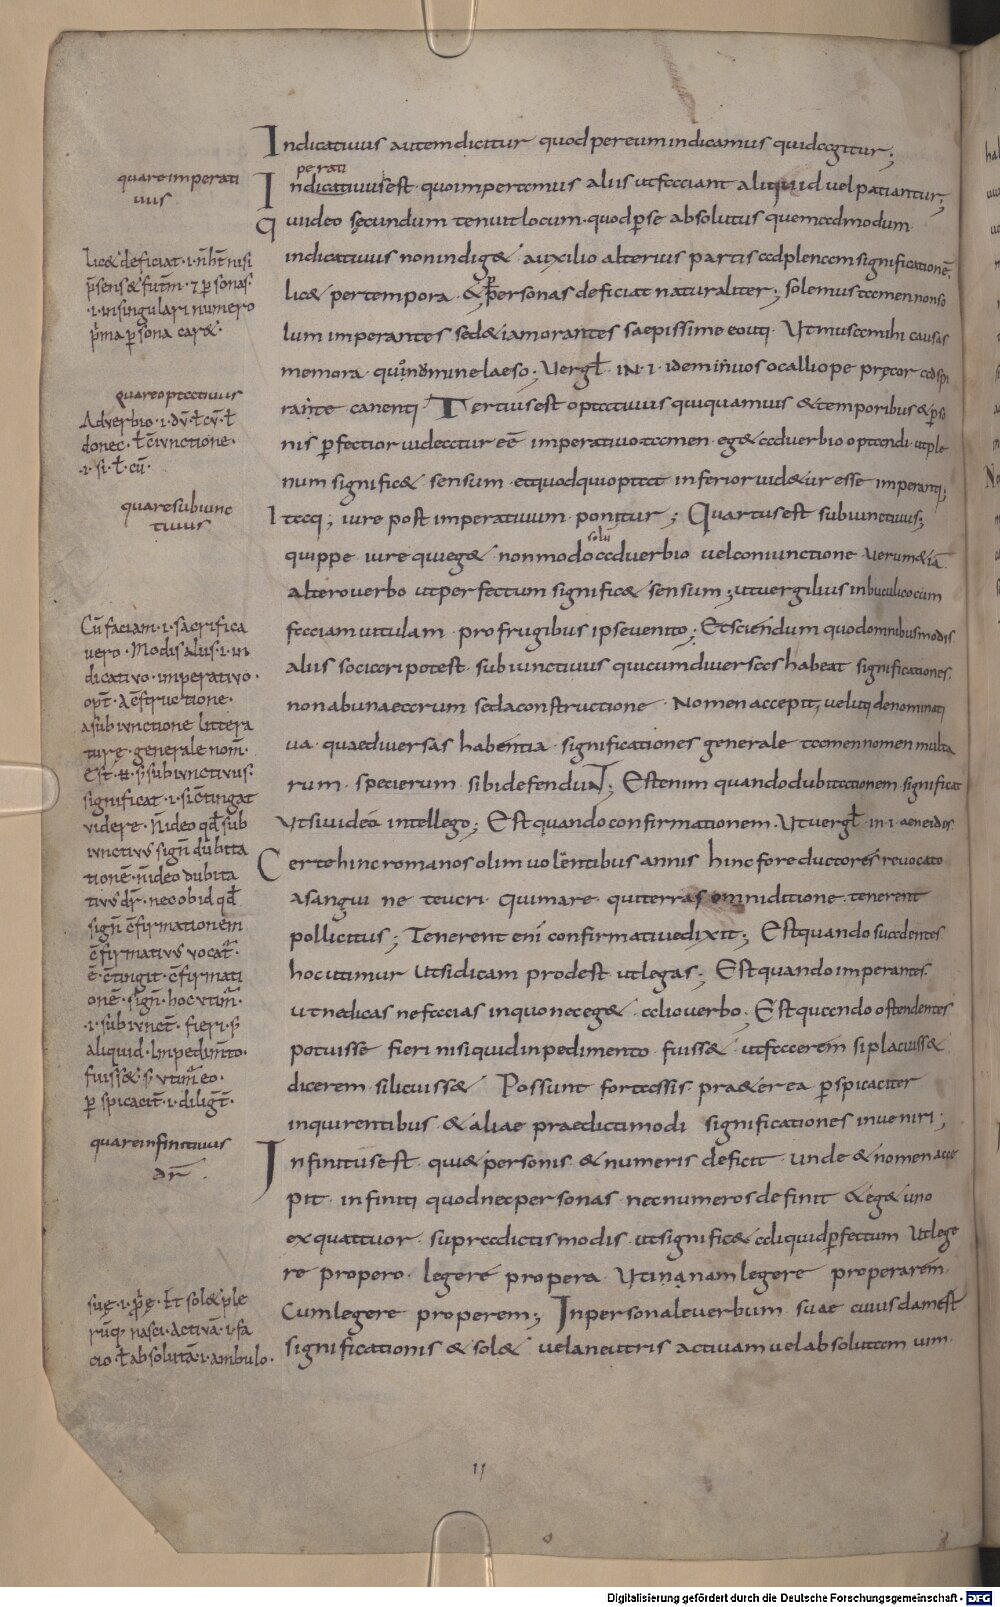 Indicativus autem dicitur quod per eum indicamus quid agitur;
quare imperati
vus
perati
Indicativus est quo imperamus aliis ut faciant aliquid vel patiantur;
Qui ideo secundum tenuit locum · quod per se absolutus quemadmodum
indicativus non indiget auxilio alterius partis ad plenam significationē;
licet per tempora & personas deficiat naturaliter; solemus tamen non so
lum imperantes sed & iam orantes saepissime eo uti · Ut musa mihi causas
memora · quo numine laeso; Vergł · IN · I · idem in · vos o calliope precor adspi
rate canenti Tertius est optativus qui quamvis & temporibus & perso
nis perfectior videatur eē imperativo tamen · eget adverbio optandi · ut ple
num significet sensum · et quod qui optat inferior videtur esse imperanti;
Itaq; iure post imperativum ponitur; Quartus est subiunctivus;
solū
quippe iure qui eget non modo adverbio vel coniunctione verum & iā
altero verbo ut perfectum significet sensum; ut vergilius in bucolico cum
faciam vitulam · pro frugibus ipse venito; Et sciendum quod omnibus modis
aliis sociari potest · subiunctivus qui cum diversas habeat significationes
non ab una earum sed a constructione · Nomen accepit, veluti denominati
va · quae diversas habentia · significationes generale tamen nomen multa
rum · specierum · sibi defendunT; Est enim quando dubitationem significat
Ut si video intellego; Est quando confirmationem Ut vergł · in · i · aeneidos
Certe hinc romanos olim volventibus annis hinc fore ductores revocato
a sangui ne teucri · Qui mare · qui terras omni ditione · tenerent
pollicitus; Tenerent enī confirmative dixit; Est quando suadentes
hoc utimur Ut si dicam prodest ut legas; Est quando imperantes
ut ne dicas ne facias in quo nec eget alio verbo · Est quando ostendentes
potuisse fieri nisi quid inpedimento fuisset ut facerem si placuisset
dicerem si licuisset Possunt fortassis praeterea perspicaciter
inquirentibus & aliae praedicti modi significationes inveniri;
Infinitus est · qui & personis & numeris deficit · unde & nomen acce
pit · infiniti quod nec personas nec numeros definit & eget uno
ex quattuor · supradictis modis · ut significet aliquid perfectum Ut lege
re propero · legere propera · Utinam legere properarem
Cum legere properem; Inpersonale verbum suae cuiusdam est
significationis & solet vel a neutris activam vel absolutam vim
Lic& deficiat · i · n̄ hab& nisi
p̄sens & futm̄ · 7 personas
· i · in singulari numero
p̄ma persona car& ·
quare optativus
Adverbio · i · dū · ł cū · ł
donec · ł c̄iunctione ·
· i · si · ł cū ·
quare subiunc
tivus
Cū faciam · i · sacrifica
vero · Modis aliis · i · in
dicativo · imperativo ·
opt̄ · A c̄structione ·
a subiunctione littera
turę · generale nom̄ ·
significat · i · si c̄tingat
videre · N̄ ideo qđ sub
iunctivus sign̄ dubita
tionē · n̄ ideo dubita
tivus dr̄ · nec ob id qđ
sign̄ c̄firmationem
c̄firmativus vocat̄ ·
ē · c̄tingit · c̄firmati
onē · sign̄ · hoc utim̄ ·
· i · subiunct̄ · fieri · s̄
aliquid · Impedim̄to ·
fuiss& · s̄ utim̄ eo ·
perspicacit̄ · i · diliḡt ·
quare infinitivus
dr̄ ·
suę · i · p̄ę · Et sol& ple
rūq; nasci · Activā · i · fa
cio · ł absolutā · i · ambulo ·
11
Digitalisierung gefördert durch die Deutsche Forschungsgemeinschaft - DFG